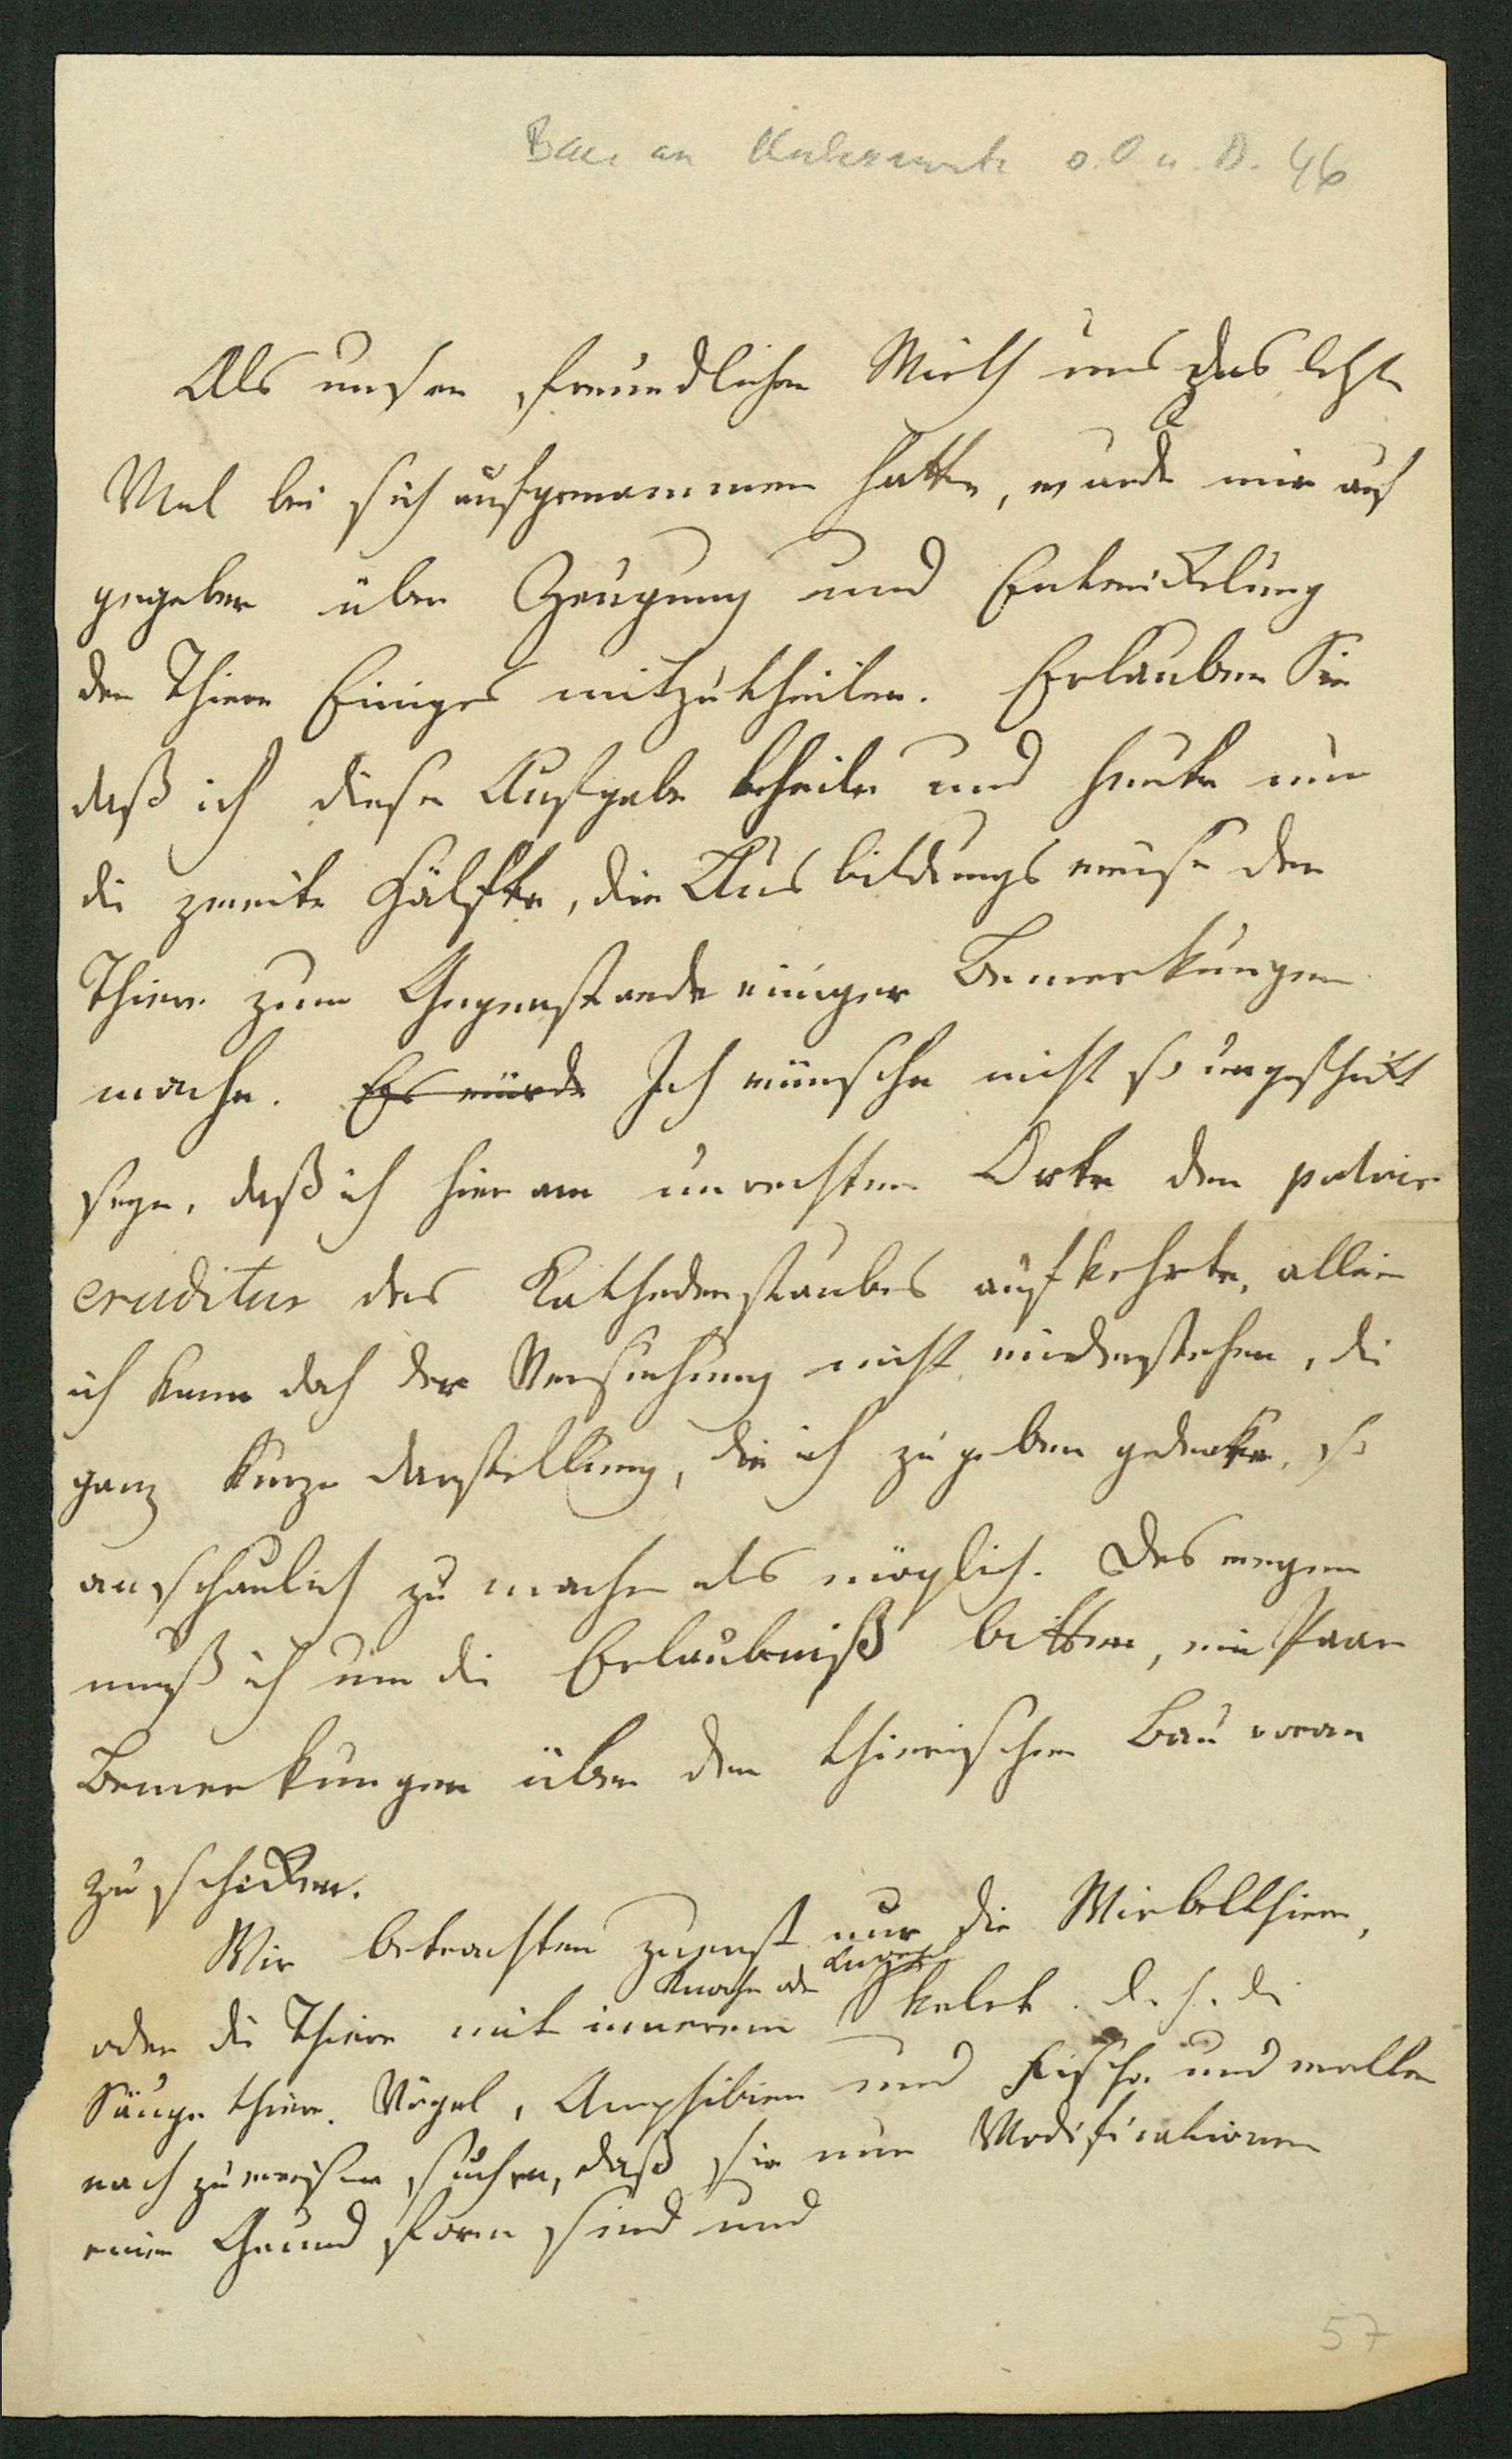 Baer an o. O u. D. 46
Als unser freundlicher Wirth uns das letzte
Mal bei sich aufgenommen hatte, wurde mir auf
gegeben über Zeugung und Entwickelung
der Thiere Einiges mitzutheilen. Erlauben Sie
daß ich diese Aufgabe theile und heute nur
die zweite Hälfte, die Ausbildungsweise der
Thiere zum Gegenstande einiger Bemerkungen
mache. Es würde Ich wünsche nicht so ungeschickt
seyn, daß ich hier am unrechten Orte den pulvis
eruditus des Kathederstaubes aufkehrte, allein
ich kann doch der Versuchung nicht widerstehen, die
ganz kurze Darstellung, die ich zu geben gedenke, so
anschaulich zu machen als möglich. Deswegen
muß ich um die Erlaubniß bitten, ein Paar
Bemerkungen über den thierischen Bau voran
zu schicken.
Wir betrachten zuerst nur die Wirbelthiere,
Knochen oder
oder die Thiere mit innerem Skelet. d. h. die
Säugethiere, Vögel, Amphibien und Fische und wollen
nachzuweisen suchen, daß sie nur Modificationen
einer Grundform sind und
57